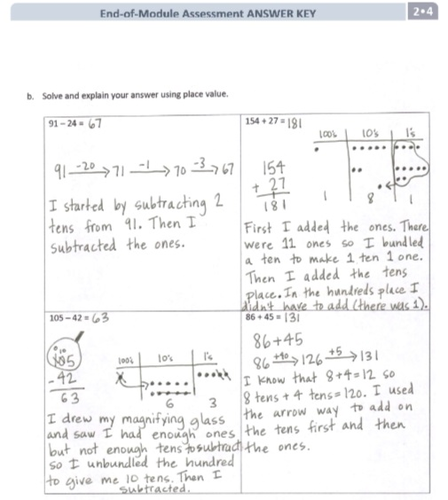 End-of-Module Assessment ANSWER KEY
2•4
b. Solve and explain your answer using place value.
91 – 24 = 67
91 -20→ 71 -1→ 70 -3→ 67
I started by subtracting 2
tens from 91. Then I
subtracted the ones.
154 + 27 = 181
100's 10's 1's
154
+ 27
181
1 8 1
First I added the ones. There
were 11 ones so I bundled
a ten to make 1 ten 1 one.
Then I added the tens
place. In the hundreds place I
didn't have to add (there was 1).
105 – 42 = 63
10
105
- 42
63
100's 10's 1's
6 3
I drew my magnifying glass
and saw I had enough ones
but not enough tens to subtract
so I unbundled the hundred
to give me 10 tens. Then I
subtracted.
86 + 45 = 131
86+45
86 +40→ 126 +5→ 131
I know that 8+4=12 so
8 tens + 4 tens = 120. I used
the arrow way to add on
the tens first and then
the ones.